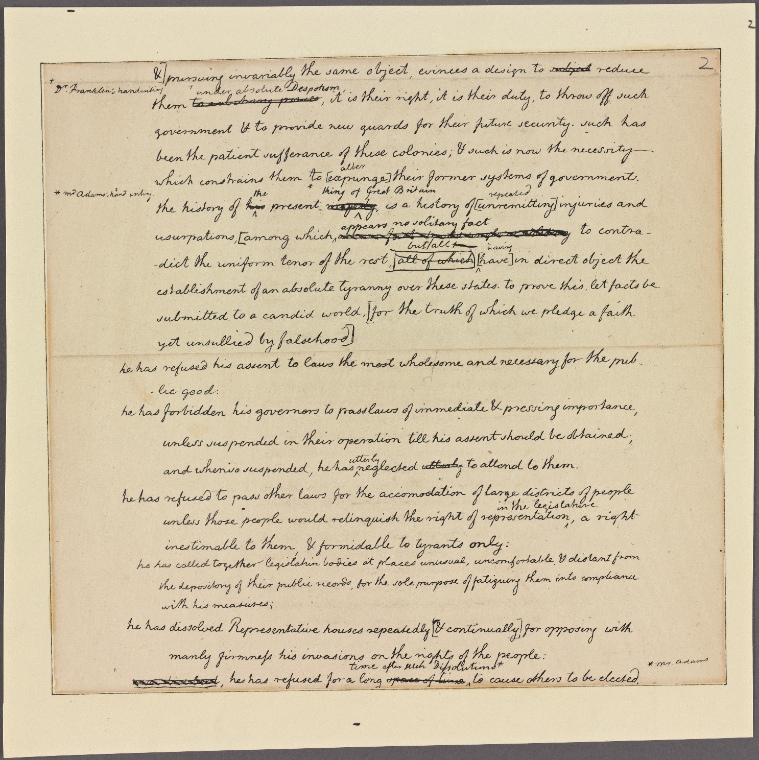 2
2
& [pursuing invariably the same object, evinces a design to subject reduce
* Dr. Franklin's handwriting
under absolute Despotism
them to arbitrary power, it is their right, it is their duty, to throw off such
government & to provide new guards for their future security. such has
been the patient sufferance of these colonies; & such is now the necessity
alter
which constrains them to [expunge] their former systems of government.
* mr Adams' hand writing
the king of Great Britain repeated
the history of his present majesty, is a history of [unremitting] injuries and
appears no solitary fact
usurpations, [among which, to contra-
but all having
-dict the uniform tenor of the rest, [all of which] [have] in direct object the
establishment of an absolute tyranny over these states. to prove this, let facts be
submitted to a candid world, [for the truth of which we pledge a faith
yet unsullied by falsehood]
he has refused his assent to laws the most wholesome and necessary for the pub-
-lic good:
he has forbidden his governors to pass laws of immediate & pressing importance,
unless suspended in their operation till his assent should be obtained;
utterly
and when so suspended, he has neglected utterly to attend to them.
he has refused to pass other laws for the accomodation of large districts of people
in the legislature
unless those people would relinquish the right of representation, a right
inestimable to them, & formidable to tyrants only:
he has called together legislative bodies at places unusual, uncomfortable, & distant from
the depository of their public records, for the sole purpose of fatiguing them into compliance
with his measures;
he has dissolved Representative houses repeatedly [& continually] for opposing with
manly firmness his invasions on the rights of the people:
time after such Dissolutions*
* mr. Adams
, he has refused for a long space of time, to cause others to be elected,